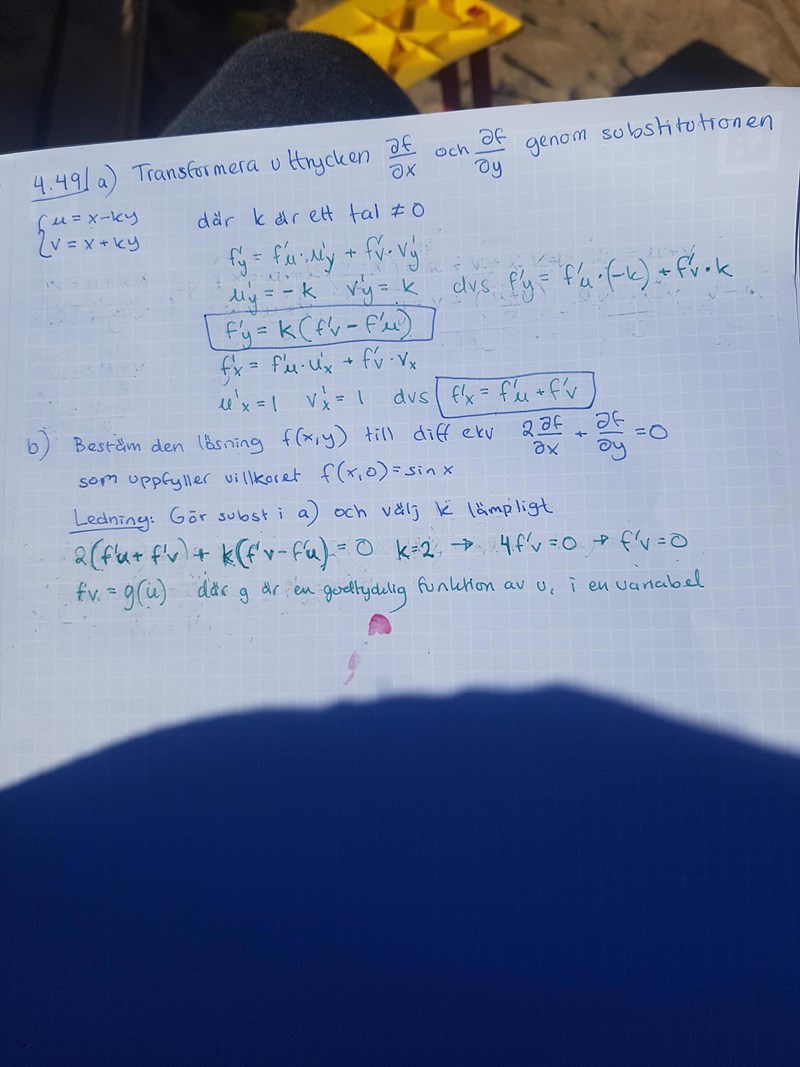 4.49/ a) Transformera uttrycken ∂f/∂x och ∂f/∂y genom substitutionen
{u = x-ky
v = x+ky där k är ett tal ≠ 0
f'y = f'u·u'y + f'v·v'y
u'y = -k v'y = k dvs f'y = f'u·(-k) + f'v·k
f'y = k(f'v - f'u)
f'x = f'u·u'x + f'v·vx
u'x = 1 v'x = 1 dvs f'x = f'u + f'v
b) Bestäm den lösning f(x,y) till diff ekv 2 ∂f/∂x + ∂f/∂y = 0
som uppfyller villkoret f(x,0) = sin x
Ledning: Gör subst i a) och välj k lämpligt
2(f'u + f'v) + k(f'v - f'u) = 0 k=2 → 4f'v = 0 → f'v = 0
fv. = g(u) där g är en godtydelig funktion av u, i en variabel